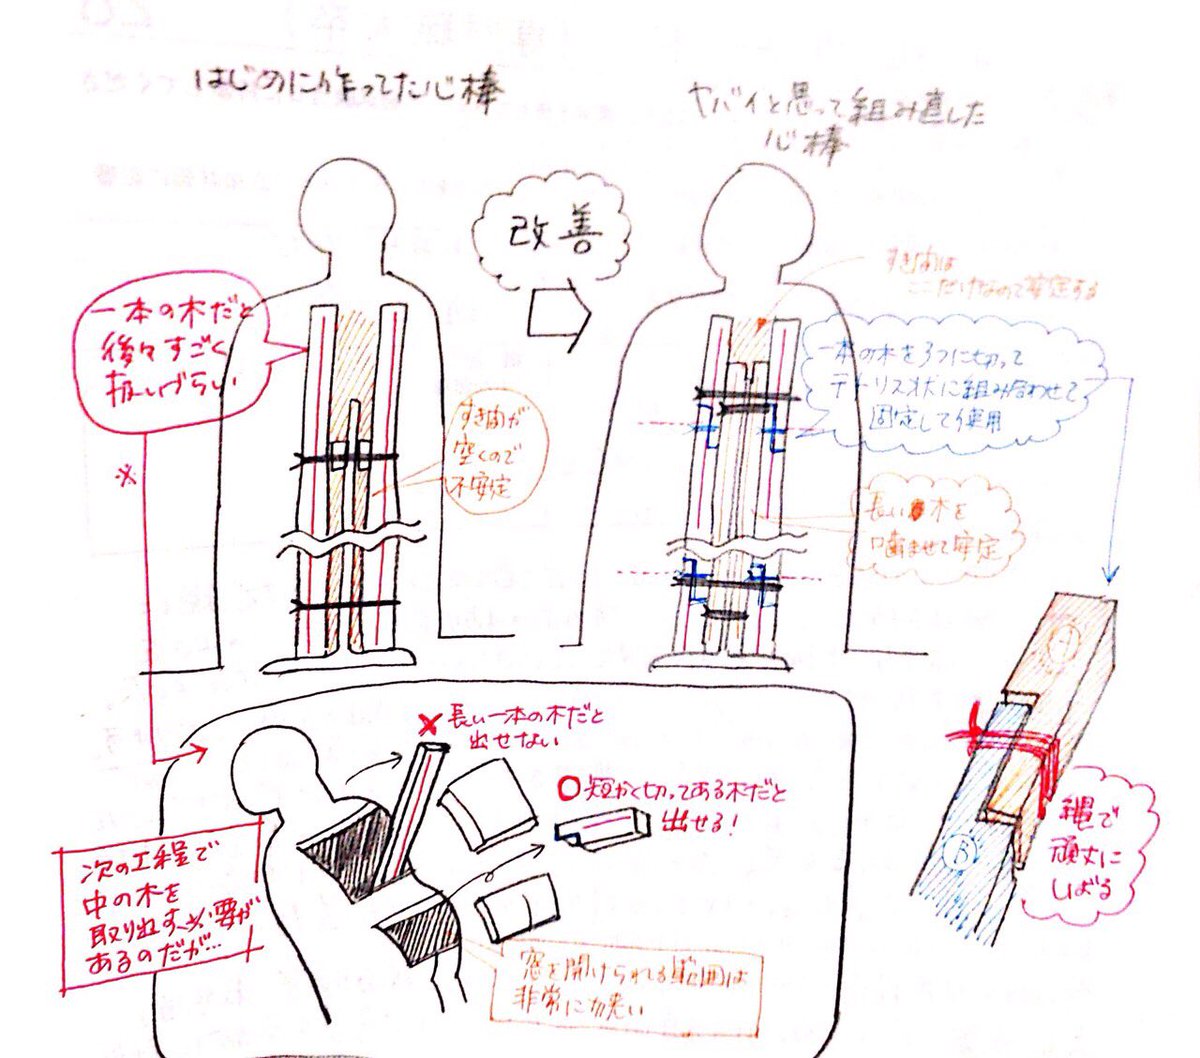 はじめに作ってた心棒
ヤバイと思って組み直した
心棒
改善
一本の木だと
後々すごく
扱いづらい
すき間が
空くので
不安定
すき間は
ここだけなので安定する
一本の木を3つに切って
テトリス状に組み合わせて
固定して使用
長い木を
噛ませて安定
※
A
B
縄で
頑丈に
しばる
×長い一本の木だと
出せない
○短かく切ってある木だと
出せる!
次の工程で
中の木を
取り出す必要が
あるのだが…
窓を開けられる範囲は
非常に狭い